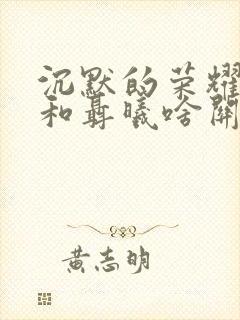 沉默的荣耀
和聂曦啥关
黄志明